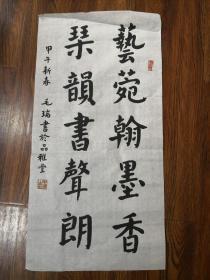 藝菀翰墨香
琹韻書聲朗
甲午新春
毛瑞書於品雅堂